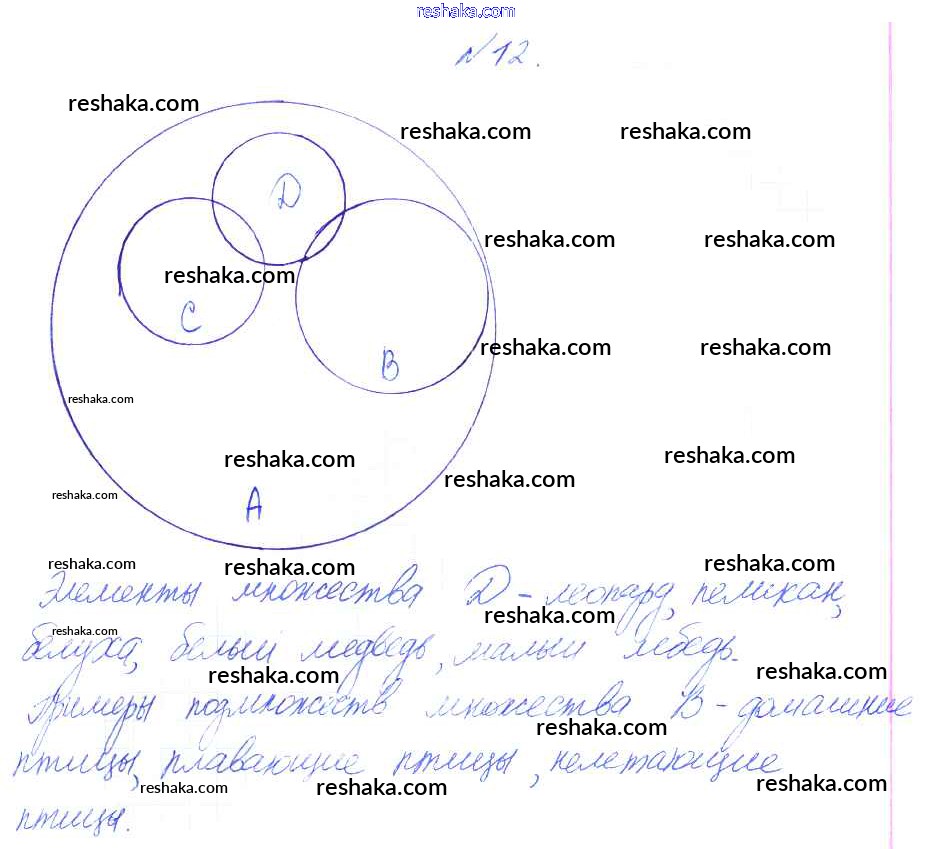 reshaka.com
№12.
reshaka.com
reshaka.com reshaka.com
D
reshaka.com reshaka.com
reshaka.com
C
reshaka.com reshaka.com
B
reshaka.com
reshaka.com reshaka.com
reshaka.com
reshaka.com
A
reshaka.com reshaka.com reshaka.com
Элементы множества D - леопард, пеликан,
reshaka.com
reshaka.com
белуха, белый медведь, малый лебедь.
reshaka.com reshaka.com
Примеры подмножеств множества B - домашние
reshaka.com
птицы, плавающие птицы, нелетающие
reshaka.com reshaka.com reshaka.com
птицы.